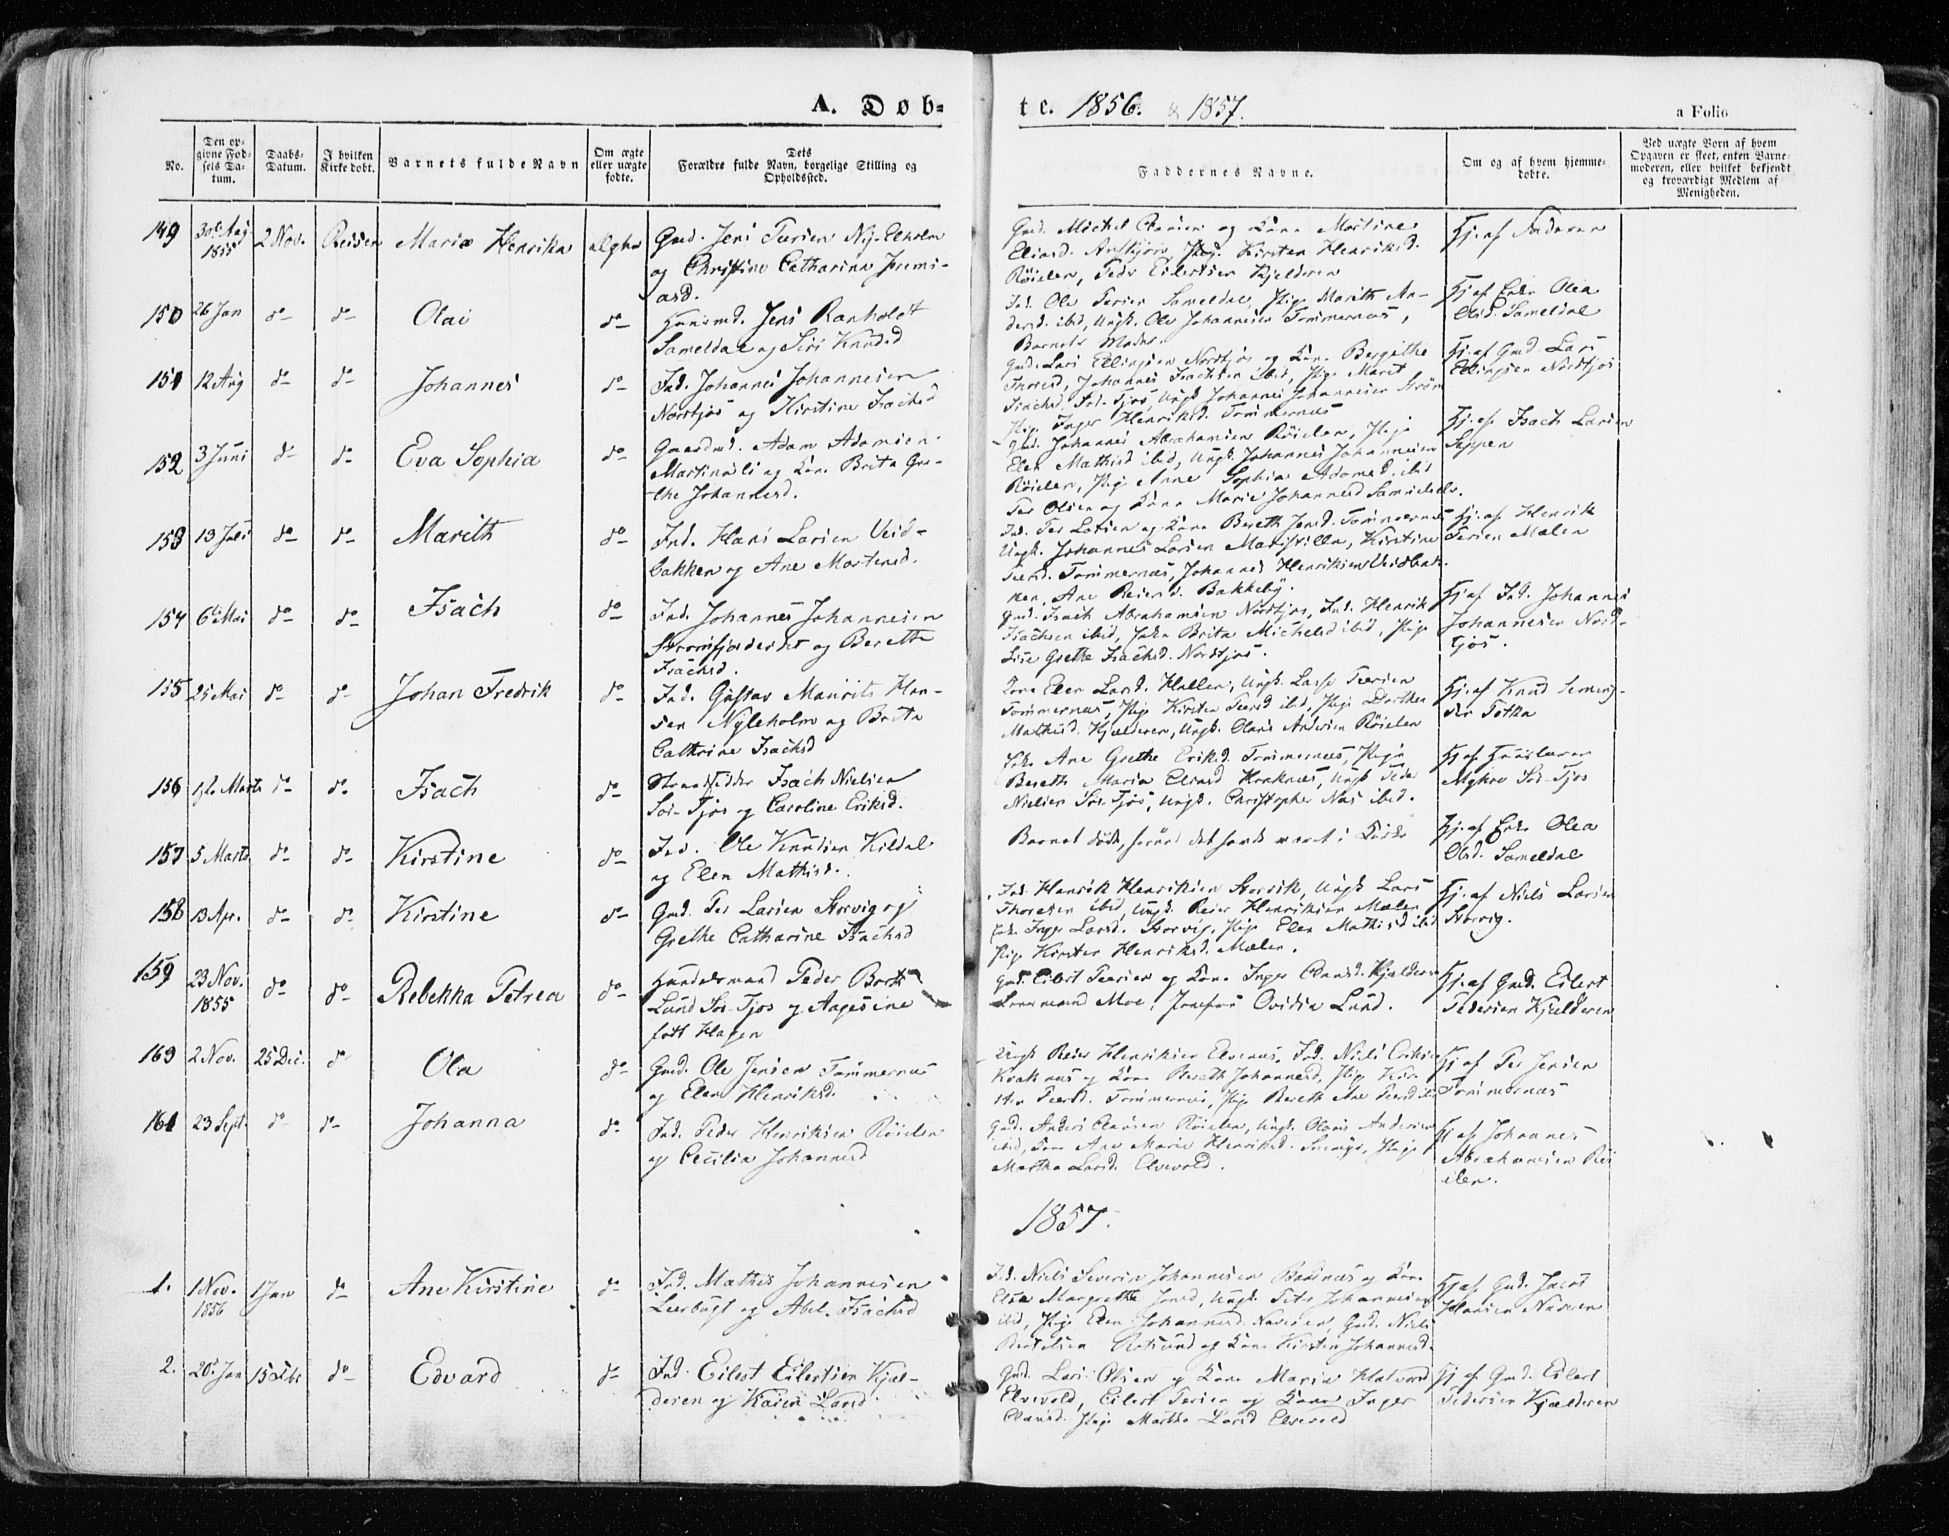 A. Døb=
te. 1856. & 1857.
a Folio
No.
Den op-
givne Fød-
sels Da-
tum.
Daabs-
Datum.
I hvilken
Kirke døbt.
Barnets fulde Navn
Om ægte
eller uægte
fødte.
Dets
Forældre fulde Navn, borgelige Stilling og
Opholdssted.
Faddernes Navne.
Om og af hvem hjemme-
døbte.
Ved uægte Børn af hvem
Opgaven er skeet, enten Barne-
moderen, eller hvilket bekjendt
og troværdigt Medlem af
Menigheden.
149 30te Aug 1855 2 Nov. Reisen Maria Henrika ægte
Gmd. Jens
og Christine Catharina Jremi-
asd.
Gmd. Michel og Kone Martine
Eliasd. Pige Kirsten Henriksd.
Røielen, Peder Eilertsen Kjelderen
Hj. af Faderen
150 26 Jan do do Olai do
Huusmd. Jens Ranholdt
Sameldal og Siri Knudsd
Ind. Ole Persen Sameldal, Pige Marith An-
dersd. ibid, Ungk. Ole Johannesen Tømmernæs,
Barnets Moder.
Hj. af Enke Olea
Olsd. Sameldal
151 12 Aug do do Johannes do
Ind. Johannes Johannesen
Nordfjos og Kirstine Isachsd
Gmd. Lars Ellingsen Nordfjos og Kone Bergithe
Thoresd, Johannes Isachsen ibid, Pige Marit
Isachsd Sør-Fjos, Ungk Johannes Johannesen
Pige Inger Henriksd. Tømmernæs
Hj. af Gmd Lars
Ellingsen Nordfjos
152 3 Juni do do Eva Sophia do
Gaardmd. Adam Adamsen
og Kone Brita Gre-
the Johannesd.
Gmd. Johannes Abrahamsen Røielen, Pige
Elen Mathisd ibid, Ungk. Johannes Johannesen
Røielen, Pige Anne Sophia Adamsd. ibid
Per Olsen og Kone Marie Johannesd
Hj. af Isach Larsen
Seppen
153 13 Juli do do Marith do
Ind. Hans Larsen Veid-
bakken og Ane Mortensd.
Ind. Per Larsen og Kone Bereth Jensd. Tømmernæs
Ungk. Johannes Larsen Kirstine
Peersd. Tømmernæs, Johannes Henriksen Veidbak-
ken, Ane Reiersd. Bakkeby.
Hj. af Henrik
Persen Mælen
154 6te Mai do do Isach do
Ind. Johannes Johannesen
og Berethe
Isachsd.
Gmd. Isach Abrahamsen Nordfjos, Ind. Henrik
Isachsen ibid, Enke Brita Michelsd ibid, Pige
Lise Grethe Isachsd. Nordfjos.
Hj. af Ind. Johannes
Johannesen Nord-
fjos.
155 25 Mai do do Johan Fredrik do
Ind. Gustav Maurits Han-
sen Nyleholm og Brita
Cathrine Isachsd
Kone Elen Larsd. Ungk. Lars Peersen
Tømmernæs, Pige Kirsten Peersd ibid, Pige Dorthea
Mathisd. Kjælderen, Ungk. Olaus Andersen Røielen
Hj. af Knud
156 1ste Marts do do Isach do
Isach Nielsen
Sør-Fjos og Caroline Eriksd.
Enke Ane Grethe Eriksd. Tømmernæs, Pige
Bereth Maria Eliasd Kraknæs, Ungk Peder
Nielsen Sør-Fjos, Ungk. Christopher ibid.
Hj af
Sør-Fjos
157 5 Marts do do Kirstine do
Ind. Ole Knudsen Kildal
og Elen Mathisd.
Barnet døde, førend det havde været i Kirke
Hj. af Enke Olea
Olsd. Sameldal
158 13 Apr. do do Kirstine do
Gmd. Per Larsen Storvig og
Grethe Catharine Isachsd
Ind. Henrik Henriksen Storvik, Ungk Lars
Thoresen ibid, Ungk. Reier Henriksen Mælen
Enke Inger Larsd. Storvig, Pige Elen Mathisd ibid
Pige Kirsten Henriksd. Mælen.
Hj. af Niels Larsen
Storvig.
159 23 Nov. 1855 do do Rebekka Petrea do
Handelsmand Peder
Lund Sør-Fjos og Aagesine
født Hagen
Gmd. Eilert Peersen og Kone Inger Olausd. Kjælderen
Lensmand Moe, Jomfru Ovidia Lund.
Hj. af Gmd. Eilert
Pedersen Kjælderen
160 2 Nov. 25 Dec. do Ola do
Gmd. Ole Jensen Tømmernæs
og Elen Henriksd.
Ungk Reier Henriksen Elvenæs, Ind. Niels Eriksen
Kraknæs og Kone Bereth Johannesd, Pige Kir-
sten Peersd. Tømmernæs, Pige Bereth Ane Peersd ibid
Hj af Per Jensen
Tømmernæs
161 23 Sept. do do Johanna do
Ind. Peder Henriksen Røielen
og Cecilia Johannesd
Gmd. Anders Clausen Røielen, Ungk. Olaus Andersen
ibid, Kone Ane Marie Henriksd. Pige
Martha Larsd. Elvevold.
Hj af Johannes
Abrahamsen Røi
elen.
1857.
1. 1 Nov. 1856 1 Jan do Ane Kirstine do
Ind. Mathis Johannesen
Leerbugt og Abel Isachsd
Ind. Niels Severin Johannesen og Kone
Elsa Margrethe Jensd, Ungk. Peter Johannesen
ibid, Pige Elen Johannesd. Gmd. Niels
Rotsund og Kone Kirsten Johannesd.
Hj af Gmd. Jacob
Hansen
2. 20de Jan 15 do Edvard do
Ind. Eilert Eilertsen Kjæl-
deren og Karen Larsd.
Gmd. Lars Olsen og Kone Maria
Elvevold, Eilert Persen og Kone Inger
Olausd. Pige Martha Larsd Elvevold
Hj af Gmd. Eilert
Pedersen Kjælderen